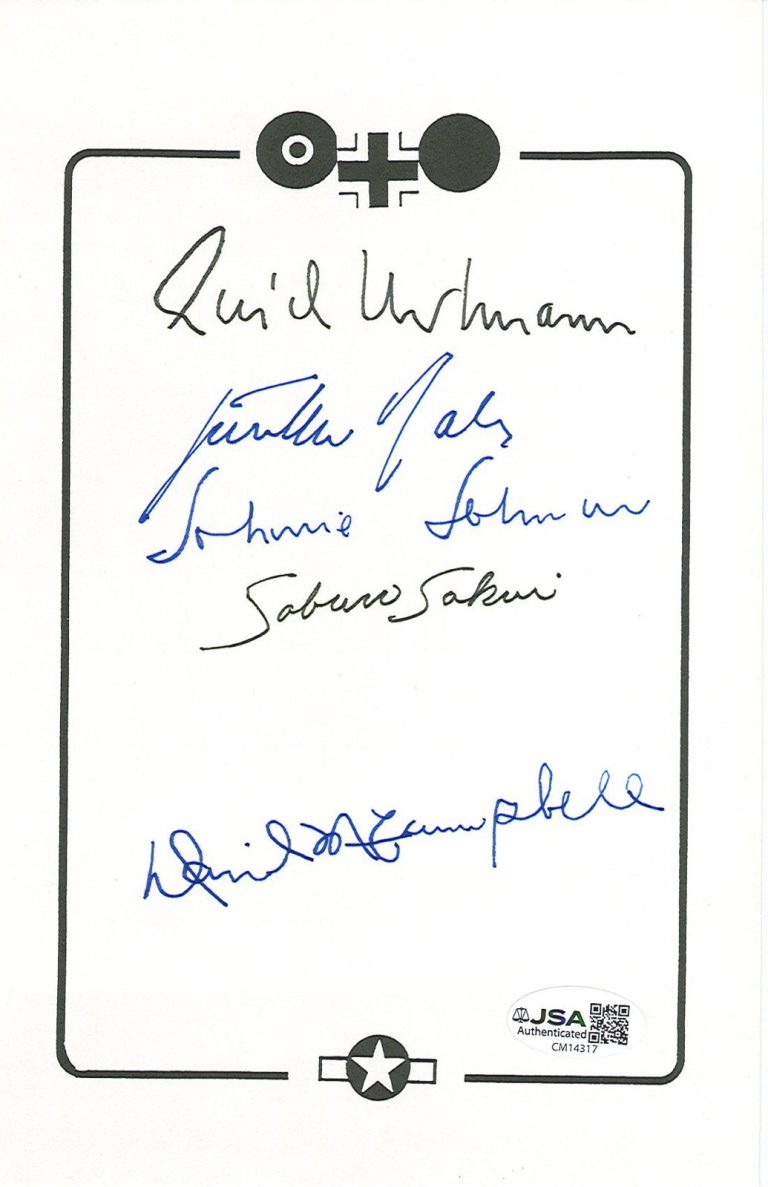 Erich Hartmann
Günther Rall
Johnnie Johnson
Saburo Sakai
David McCampbell
JSA
Authenticated
CM14317